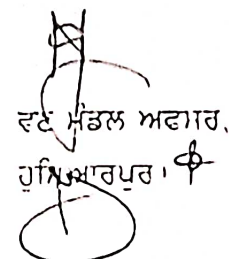 ਵਣ ਮੰਡਲ ਅਫਸਰ,
ਹੁਸ਼ਿਆਰਪੁਰ।